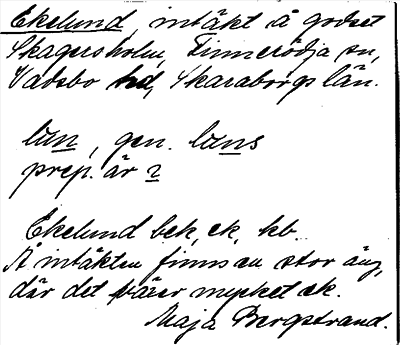 Ekelund, intäkt å godset
Skagersholm, Finnerödja sn,
Vadsbo hd, Skaraborgs län.
lun, gen. luns
prep. är 2
Ekelund bek, ek, kb
Å intäkten finns en stor äng,
där det växer mycket ek.
Maja Bergstrand.